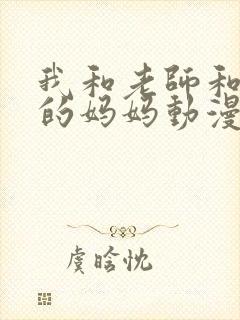 我和老師和
的妈妈動漫
虞晗忱